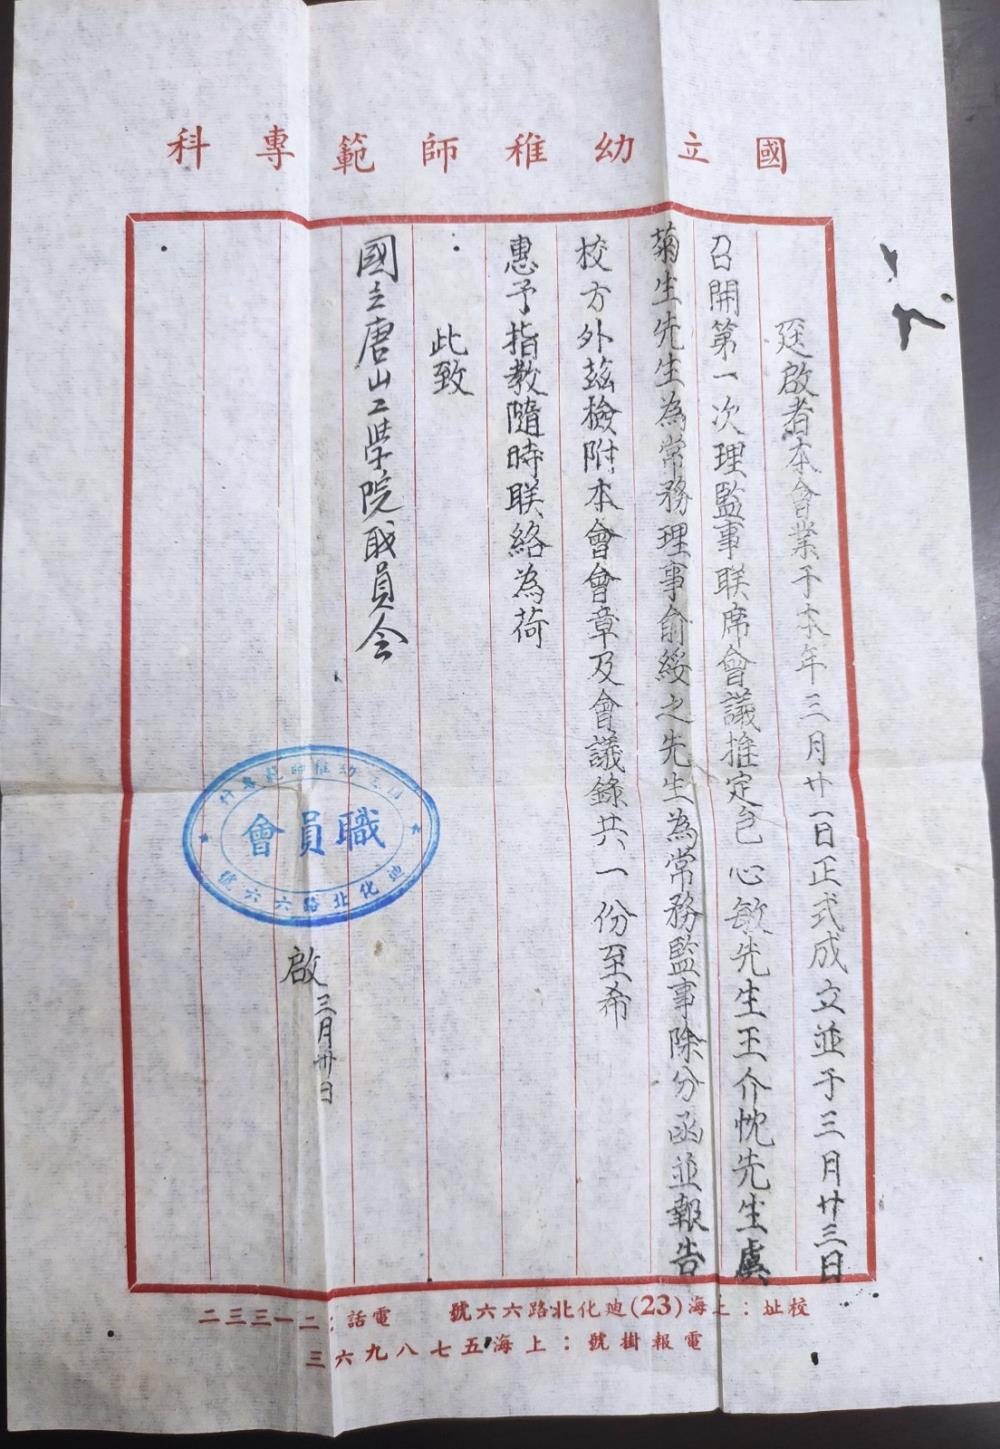 國立幼稚師範專科
迳啟者本會業于本年三月廿一日正式成立並于三月廿三日
召開第一次理監事联席會議推定包心敏先生王介忱先生虞
菊生先生為常務理事俞綏之先生為常務監事除分函並報告
校方外茲檢附本會會章及會議錄共一份至希
惠予指教隨時联絡為荷
此致
國立唐山工學院职員会
國立幼稚師範專科
職員會
迪化北路六六號
啟 三月卅日
校址：上海(23)迪化北路六六號 電話：二一三三二
電報掛號：上海五七八九六三